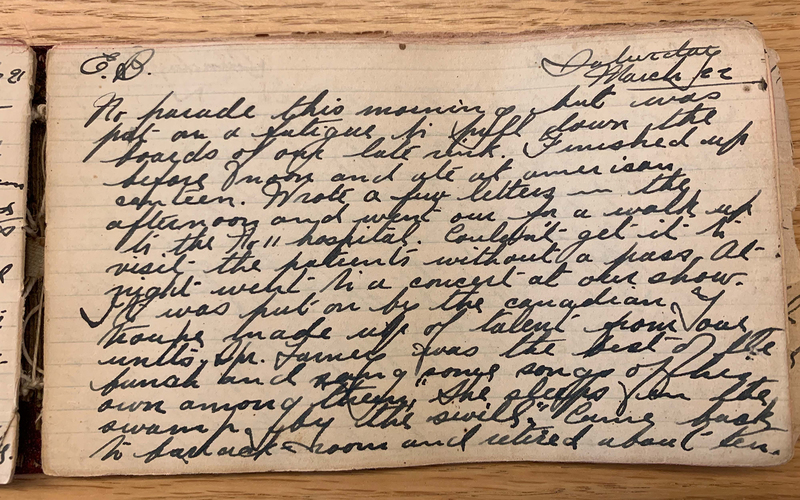 E. B.
Saturday
March 22
No parade this morning but was
put on a fatigue to pull down the
boards of our late rink. Finished up
before noon and ate at american
canteen. Wrote a few letters in the
afternoon and went out for a walk up
to the No 11 hospital. Couldn't get it to
visit the patients without a pass. At
night went to a concert at our show.
It was put on by the canadian "Y"
troupe made up of talent from our
units. Spr. was the best of the
bunch and sang some songs of his
own among them, "She sleeps in the
swamp by the swill." Came back
to barrack-room and retired about ten.